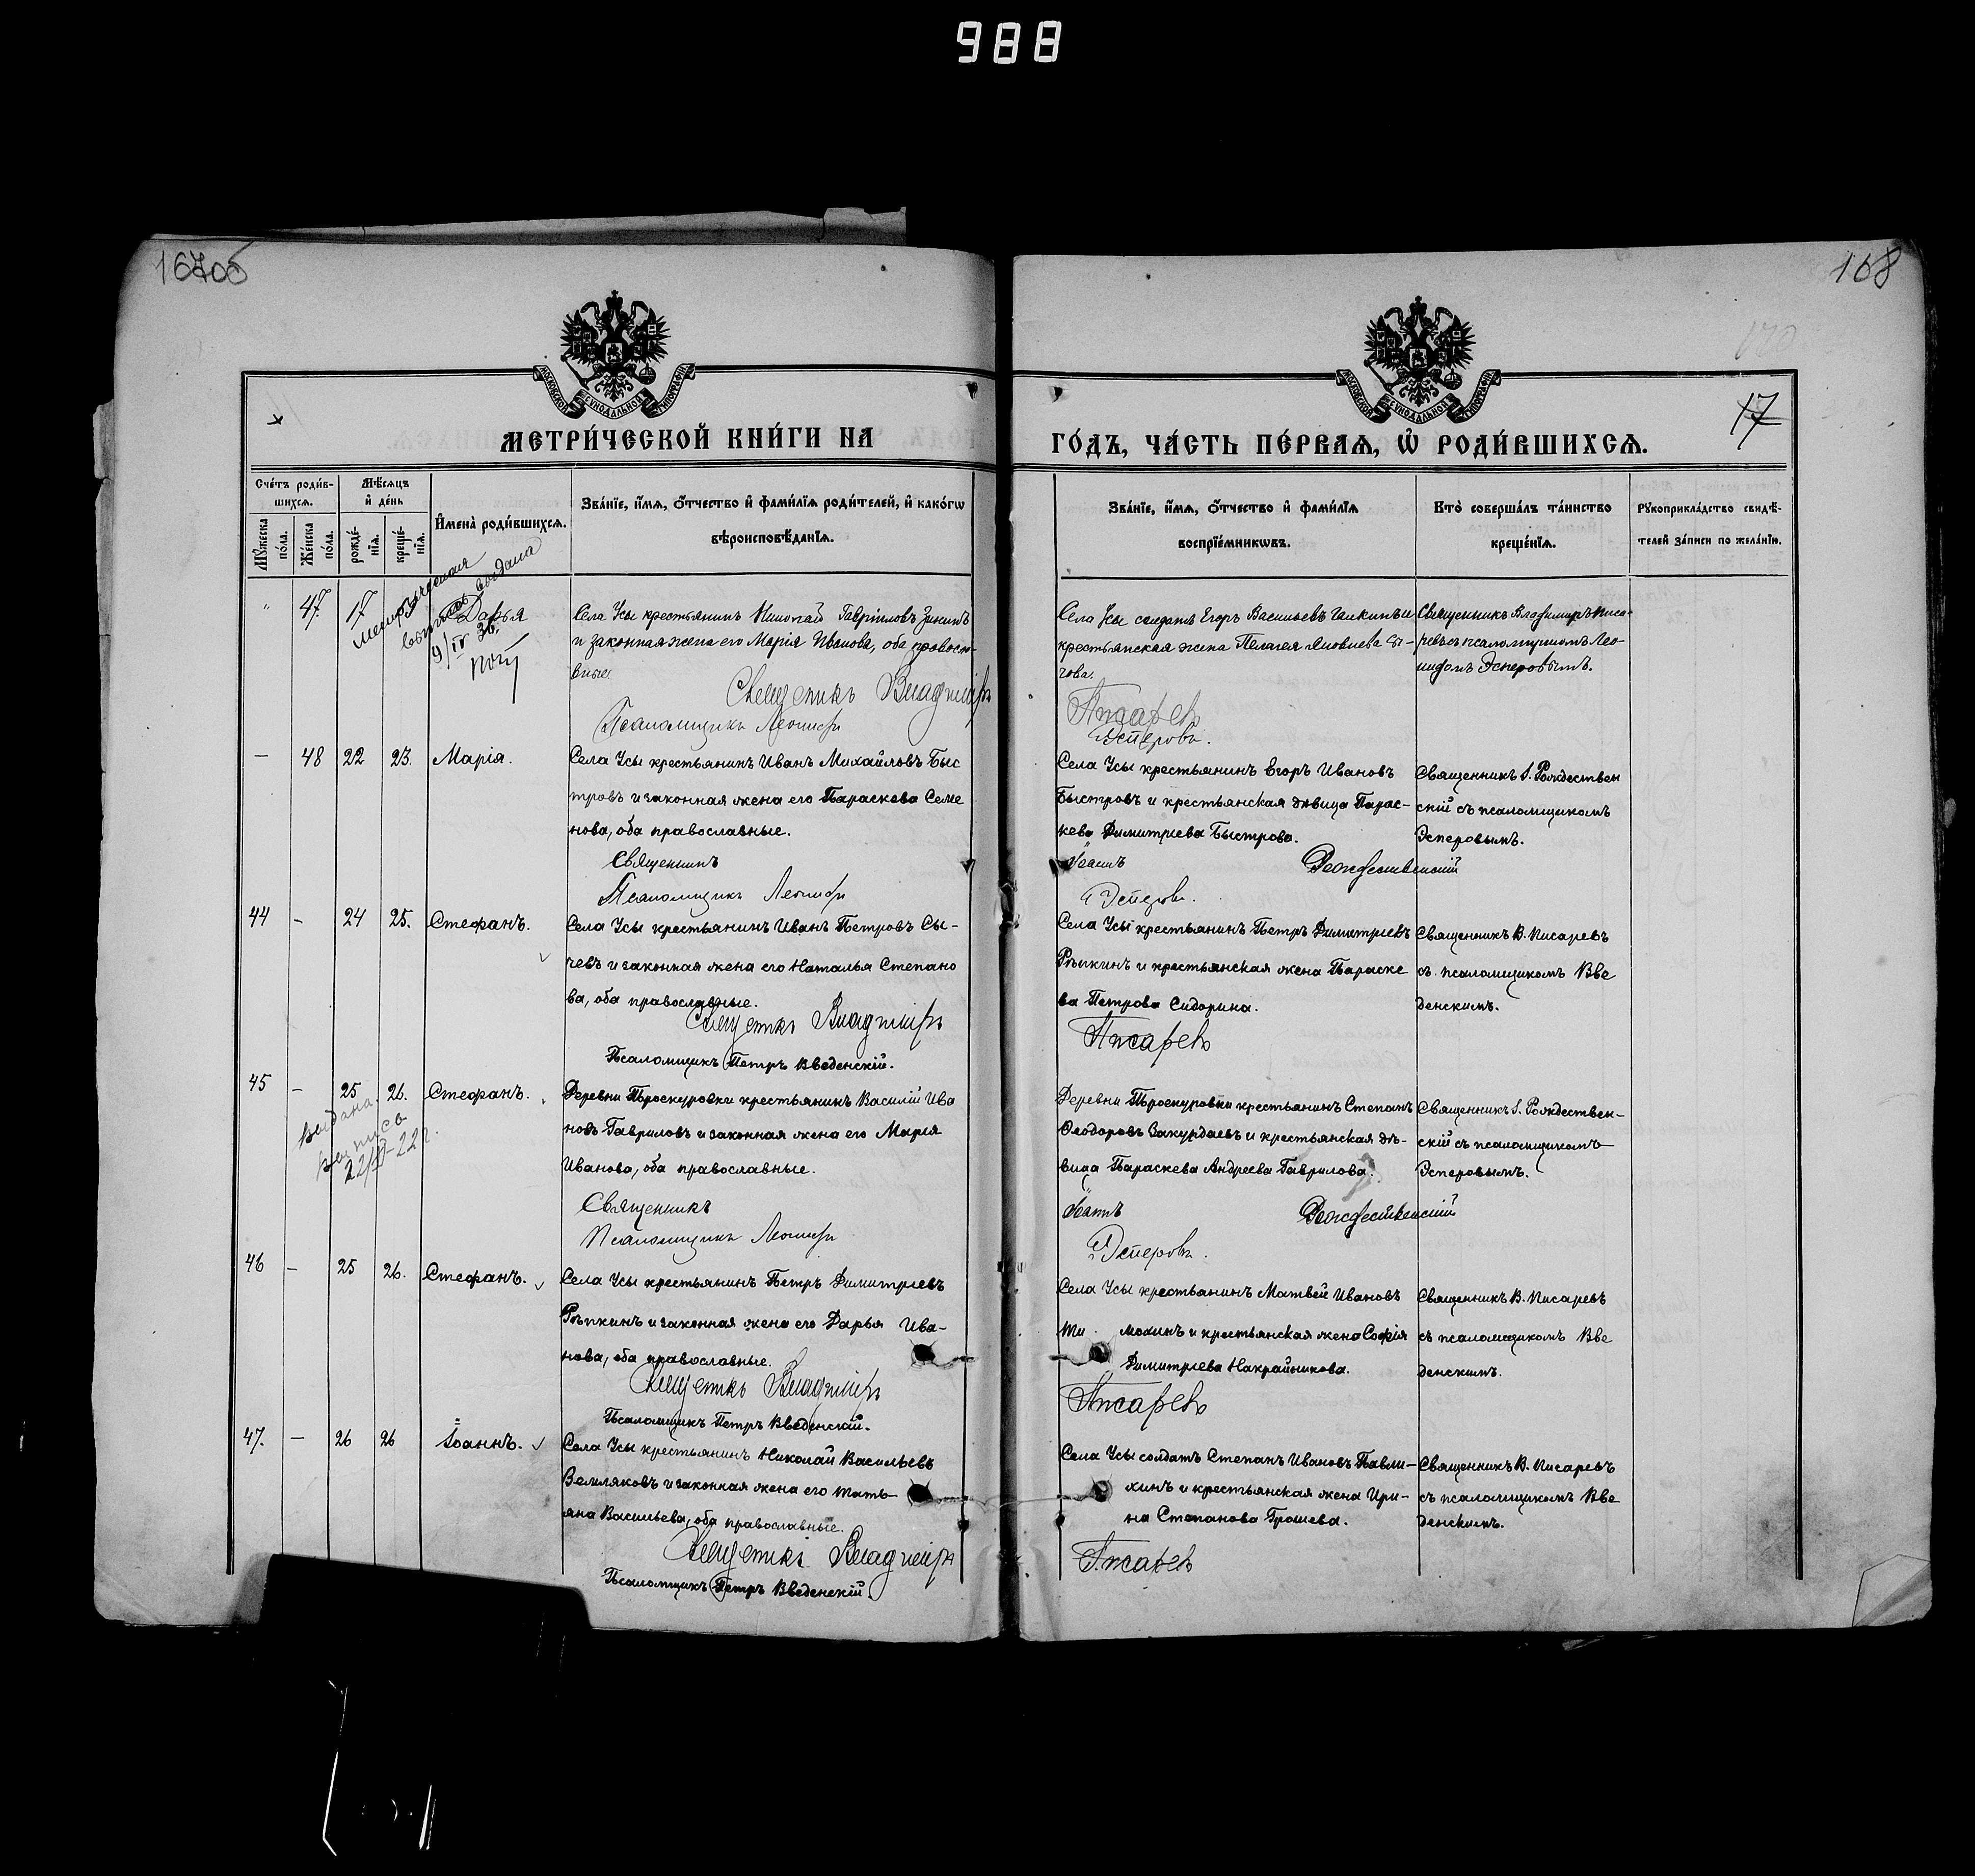 988
167об
168
17
МОСКОВСКОЙ СѴНОДАЛЬНОЙ ТИПОГРАФІИ
МОСКОВСКОЙ СѴНОДАЛЬНОЙ ТИПОГРАФІИ
МЕТРИ́ЧЕСКОЙ КНИ́ГИ НА
ГО́ДЪ, ЧА́СТЬ ПЕ́РВАѦ, Ѡ РОДИ́ВШИХСѦ.
Сче́тъ роди́в-
шихсѧ.
Мѣ́сѧцъ
и҆ де́нь
Мꙋ́жеска по́ла.
Же́нска по́ла.
рожде́-нїѧ.
креще́-нїѧ.
И҆мена̀ роди́вшихсѧ.
Зва́нїе, и҆́мѧ, ѻ҆́тчество и҆ фами́лїѧ роди́телей, и҆ како́гѡ
вѣроисповѣ́данїѧ.
Зва́нїе, и҆́мѧ, ѻ҆́тчество и҆ фами́лїѧ
воспрїе́мникѡвъ.
Кто̀ соверша́лъ та́инство
креще́нїѧ.
Рꙋкоприкла́дство свидѣ́-
телей за́писи по жела́нїю.
" 47. 17 Дарья
метрическая
выпись выдана
9/IV 36.
Села Усы крестьянинъ Николай Гавріиловъ Зининъ
и законная жена его Марія Иванова, оба правосла-
вные.
Священникъ Владиміръ
Псаломщикъ Леонидъ
Села Усы солдатъ Егоръ Васильевъ Галкинъ и
крестьянская жена Пелагея Яковлева Сы-
чова.
Писаревъ
Эсперовъ.
Священникъ Владимиръ Писа-
ревъ съ псаломщикомъ Лео-
нидомъ Эсперовымъ.
— 48 22 23. Марія.
Села Усы крестьянинъ Иванъ Михайловъ Быс
тровъ и законная жена его Параскева Семе
нова, оба православные.
Священникъ
Псаломщикъ Леонидъ
Села Усы крестьянинъ Егоръ Ивановъ
Быстровъ и крестьянская дѣвица Парас-
кева Димитріева Быстрова.
Іоаннъ Рождественскій
Эсперовъ.
Священникъ І. Рождествен
скій съ псаломщикомъ
Эсперовымъ.
44 - 24 25. Стефанъ.
Села Усы крестьянинъ Иванъ Петровъ Сы-
чевъ и законная жена его Наталья Степано
ва, оба православные.
Священникъ Владиміръ
Псаломщикъ Петръ Введенскій.
Села Усы крестьянинъ Петръ Димитріевъ
Рѣпкинъ и крестьянская жена Параске
ва Петрова Сидорина.
Писаревъ
Священникъ В. Писаревъ
съ псаломщикомъ Вве
денскимъ.
45 - 25 26. Стефанъ.
Выдана
выпись
Деревни Проскуровки крестьянинъ Василій Ива
новъ Гавриловъ и законная жена его Марія
Иванова, оба православные.
Священникъ
Псаломщикъ Леонидъ
Деревни Проскуровки крестьянинъ Степанъ
Ѳеодоровъ Закурдаевъ и крестьянская дѣ-
вица Параскева Андреева Гаврилова.
Іоаннъ Рождественскій
Эсперовъ.
Священникъ І. Рождествен-
скій съ псаломщикомъ
Эсперовымъ.
46 - 25 26. Стефанъ.
Села Усы крестьянинъ Петръ Димитріевъ
Рѣпкинъ и законная жена его Дарья Ива-
нова, оба православные.
Священникъ Владиміръ
Псаломщикъ Петръ Введенскій.
Села Усы крестьянинъ Матвей Ивановъ
Ти мохинъ и крестьянская жена Софія
Димитріева Накрайникова.
Писаревъ
Священникъ В. Писаревъ
съ псаломщикомъ Вве
денскимъ.
47. - 26 26 Іоаннъ.
Села Усы крестьянинъ Николай Васильевъ
Земляковъ и законная жена его Тать-
яна Васильева, оба православные.
Священникъ Владиміръ
Псаломщикъ Петръ Введенскій.
Села Усы солдатъ Степанъ Ивановъ Павли-
хинъ и крестьянская жена Ири-
на Степанова Грошева.
Писаревъ
Священникъ В. Писаревъ
съ псаломщикомъ Вве
денскимъ.